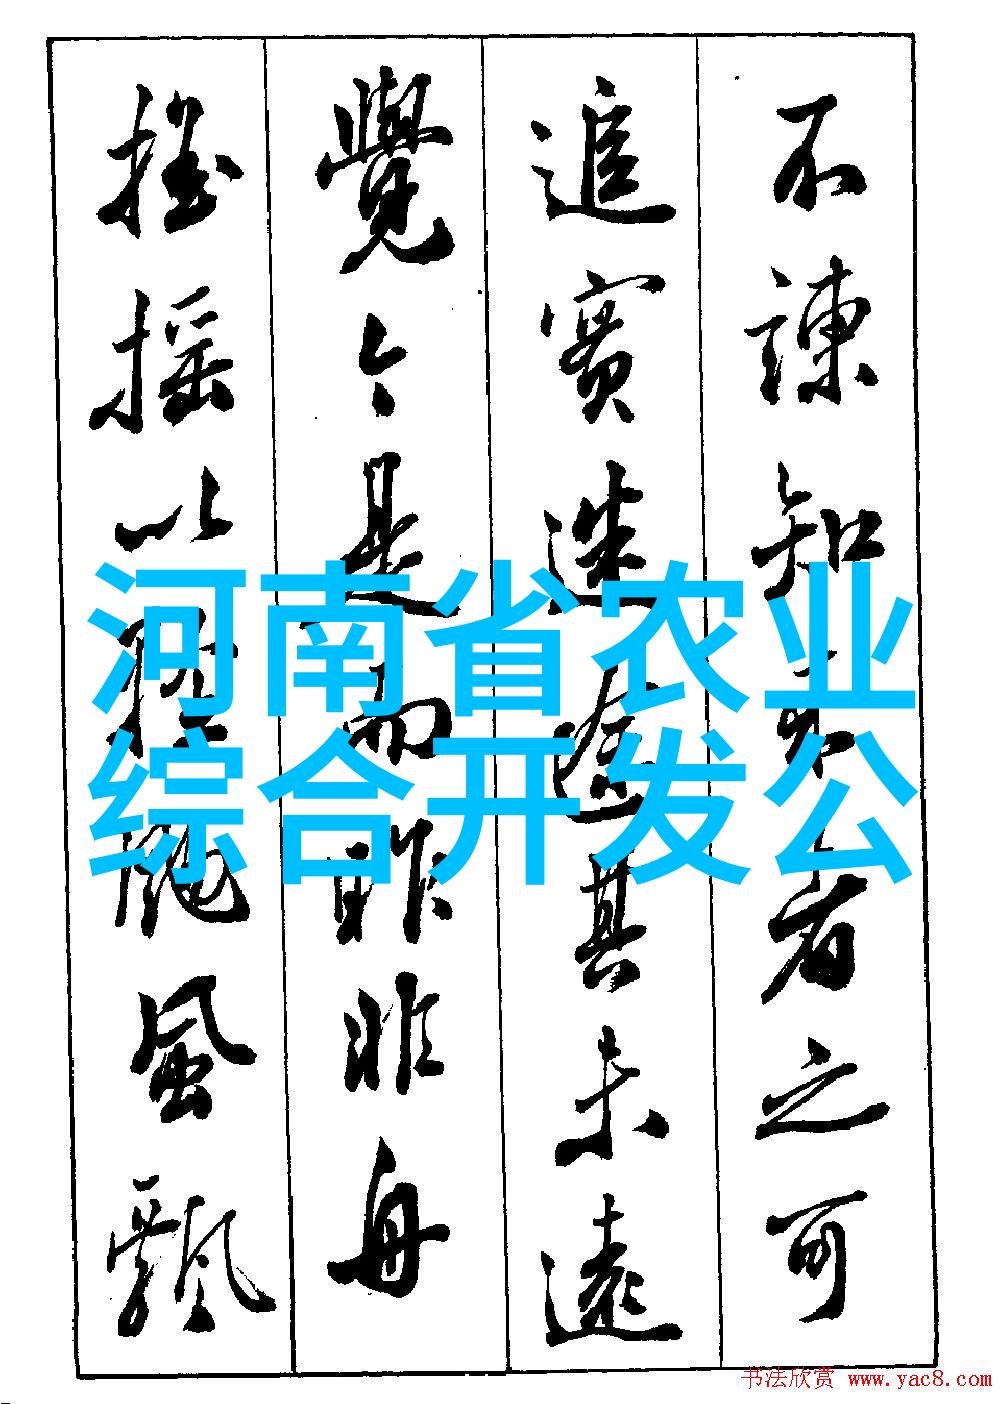 不諫知来者之可
追實迷途其未遠
覺今是而昨非舟
摇摇以輕颺風飄
河南省农业
综合开发公
书法欣赏 www.yac8.com